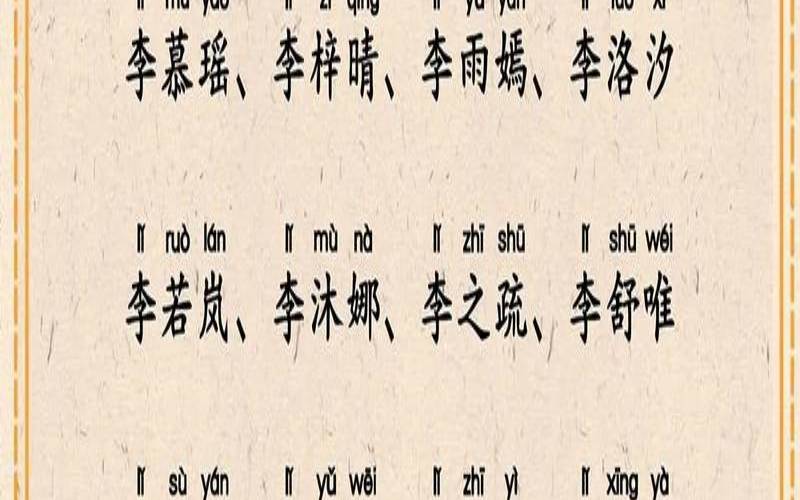 lǐ mù yáo lǐ zǐ qíng lǐ yǔ yān lǐ luò xī
李慕瑶、李梓晴、李雨嫣、李洛汐
lǐ ruò lán lǐ mù nà lǐ zhī shū lǐ shū wéi
李若岚、李沐娜、李之疏、李舒唯
lǐ sù yán lǐ yǔ wēi lǐ zhī yì lǐ xīng yà